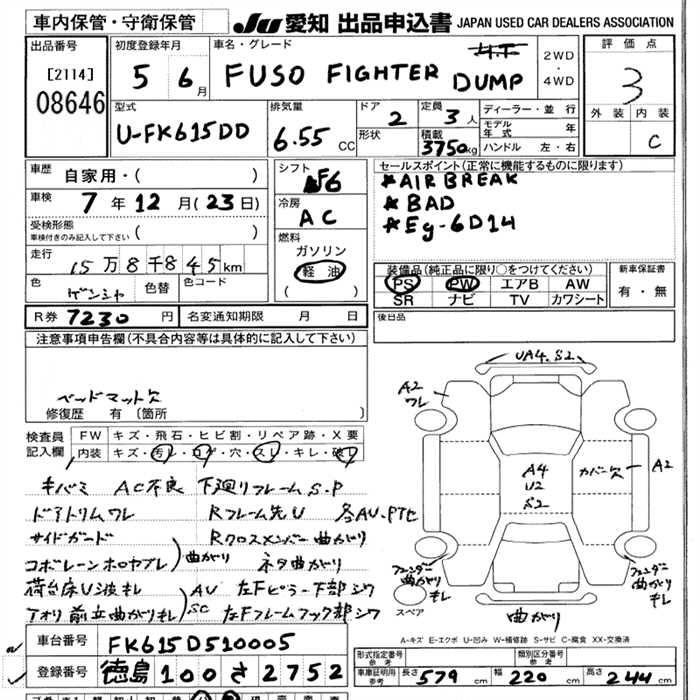 車内保管・守衛保管
JU 愛知 出品申込書 JAPAN USED CAR DEALERS ASSOCIATION
出品番号
[2114]
08646
初度登録年月
5 6月
車名・グレード
FUSO FIGHTER DUMP
2WD
・
4WD
評価点
3
外装 内装
C
型式
U-FK615DD
排気量
6.55 CC
ドア
2
形状
定員
3人
積載
3750kg
ディーラー・並行
モデル年式 年
ハンドル 左・右
車歴
自家用・( )
車検
7年12月(23日)
受検形態
車検付きのみ記入して下さい ( )
走行
15万8千845km
色
ゲンシャ
色替
色コード
シフト
F6
冷房
AC
燃料
ガソリン
軽油
( )
セールスポイント(正常に機能するものに限ります)
*AIR BREAK
*BAD
*Eg-6D14
装備品(純正品に限り○をつけてください)
PS PW エアB AW
SR ナビ TV カワシート
新車保証書
有・無
R券 7230円
名変通知期限 月 日
後日品
注意事項申告欄(不具合内容等は具体的に記入して下さい)
ベッドマット欠
修復歴 有〔箇所 〕
検査員記入欄
FW キズ・飛石・ヒビ割・リペア跡・X要
内装 キズ・汚レ・コゲ・穴・スレ・キレ・破レ
キバミ AC不良 下廻リフレームS.P
ドアトリムワレ Rフレーム先U 各AU・PTセ
サイドガード Rクロスメンバー曲がり
コボレーンホロヤブレ 曲がり ネタ曲がり
荷台床U浪キレ AU 左Fピラー下部シワ
アオリ前立曲がりキレ SC 左Fフレームフック部シワ
UA4.S2
A2
ワレ
A4
U2
S2
カバー欠
A2
フェンダー
曲がり
キレ
フェンダー
曲がり
キレ
スペア
曲がり
A-キズ E-エクボ U-凹み W-補修跡 S-サビ C-腐食 XX-交換済
車台番号 FK615D510005
登録番号 徳島100さ2752
型式指定番号
参考
類別区分番号
参考
車庫証明用
参考
長さ 579cm 幅 220cm 高さ 244cm